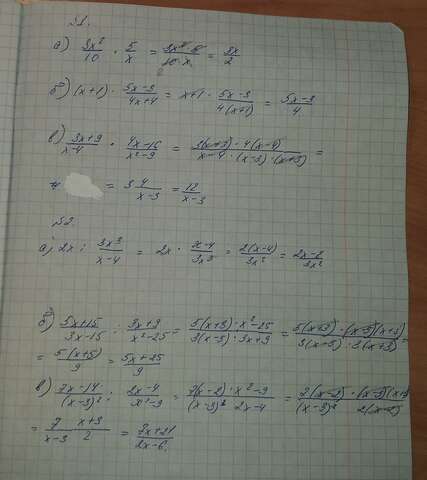 №1.
а) 3x²/10 · 5/x = 3x² · 5/10 · x = 3x/2
б) (x+1) · 5x-3/4x+4 = x+1 · 5x-3/4(x+1) = 5x-3/4
в) 3x+9/x-4 · 4x-16/x²-9 = 3(x+3) · 4(x-4)/x-4 · (x-3) · (x+3) =
= 3 4/x-3 = 12/x-3
№2.
а) 2x : 3x³/x-4 = 2x · x-4/3x³ = 2(x-4)/3x² = 2x-8/3x²
б) 5x+15/3x-15 : 3x+9/x²-25 = 5(x+3) · x²-25/3(x-5) · 3x+9 = 5(x+3) · (x-5)(x+5)/3(x-5) · 3(x+3) =
= 5(x+5)/9 = 5x+25/9
в) 7x-14/(x-3)² : 2x-4/x²-9 = 7(x-2) · x²-9/(x-3)² 2x-4 = 7(x-2) · (x-3)(x+3)/(x-3)² 2(x-2)
= 7 x+3/x-3 2 = 7x+21/2x-6